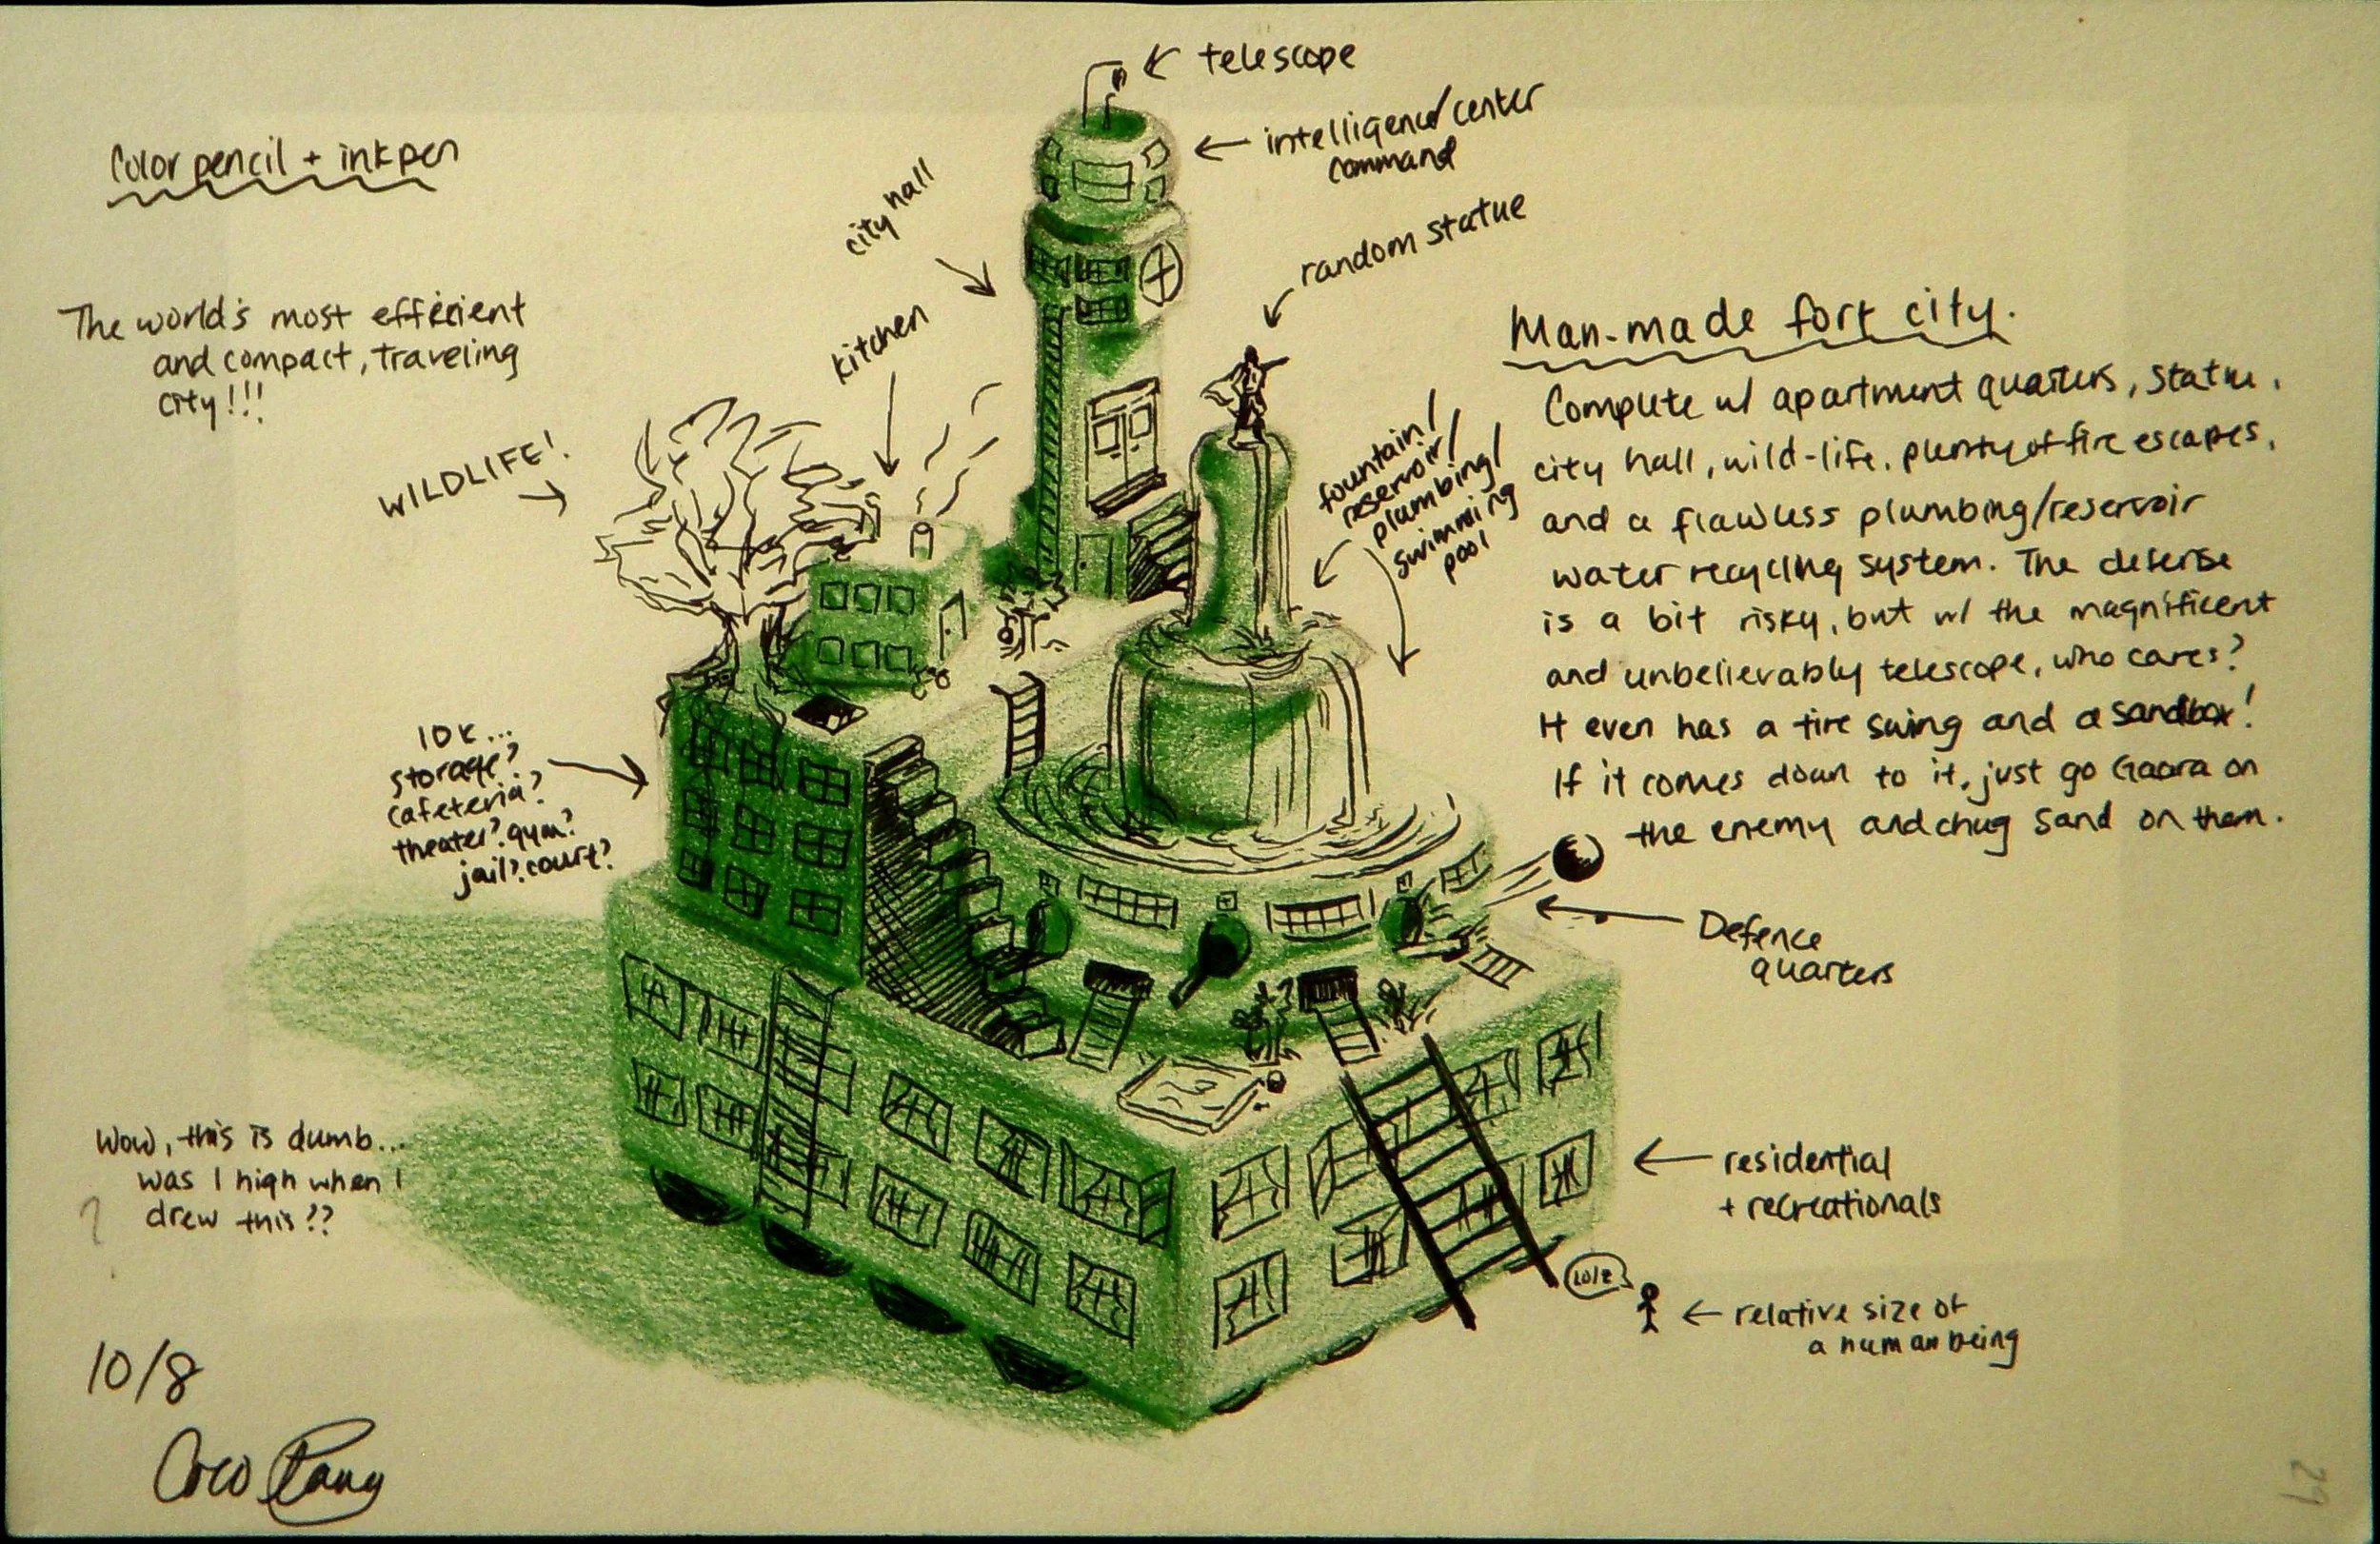 Color pencil + inkpen
The world's most efficient
and compact, traveling
city!!!
WILDLIFE!
city hall
kitchen
telescope
intelligence/center
command
random statue
fountain/
reservoir/
plumbing/
swimming
pool
Man-made fort city.
Complete w/ apartment quarters, statue,
city hall, wild-life, plenty of fire escapes,
and a flawless plumbing/reservoir
water recycling system. The defense
is a bit risky, but w/ the magnificent
and unbelievably telescope, who cares?
It even has a tire swing and a sandbox!
If it comes down to it, just go Gaara on
the enemy and chug sand on them.
IDK...
storage?
cafeteria?
theater? gym?
jail? court?
Defence
quarters
residential
+ recreationals
relative size of
a human being
Wow, this is dumb...
was I high when I
drew this??
10/8
Coco
29